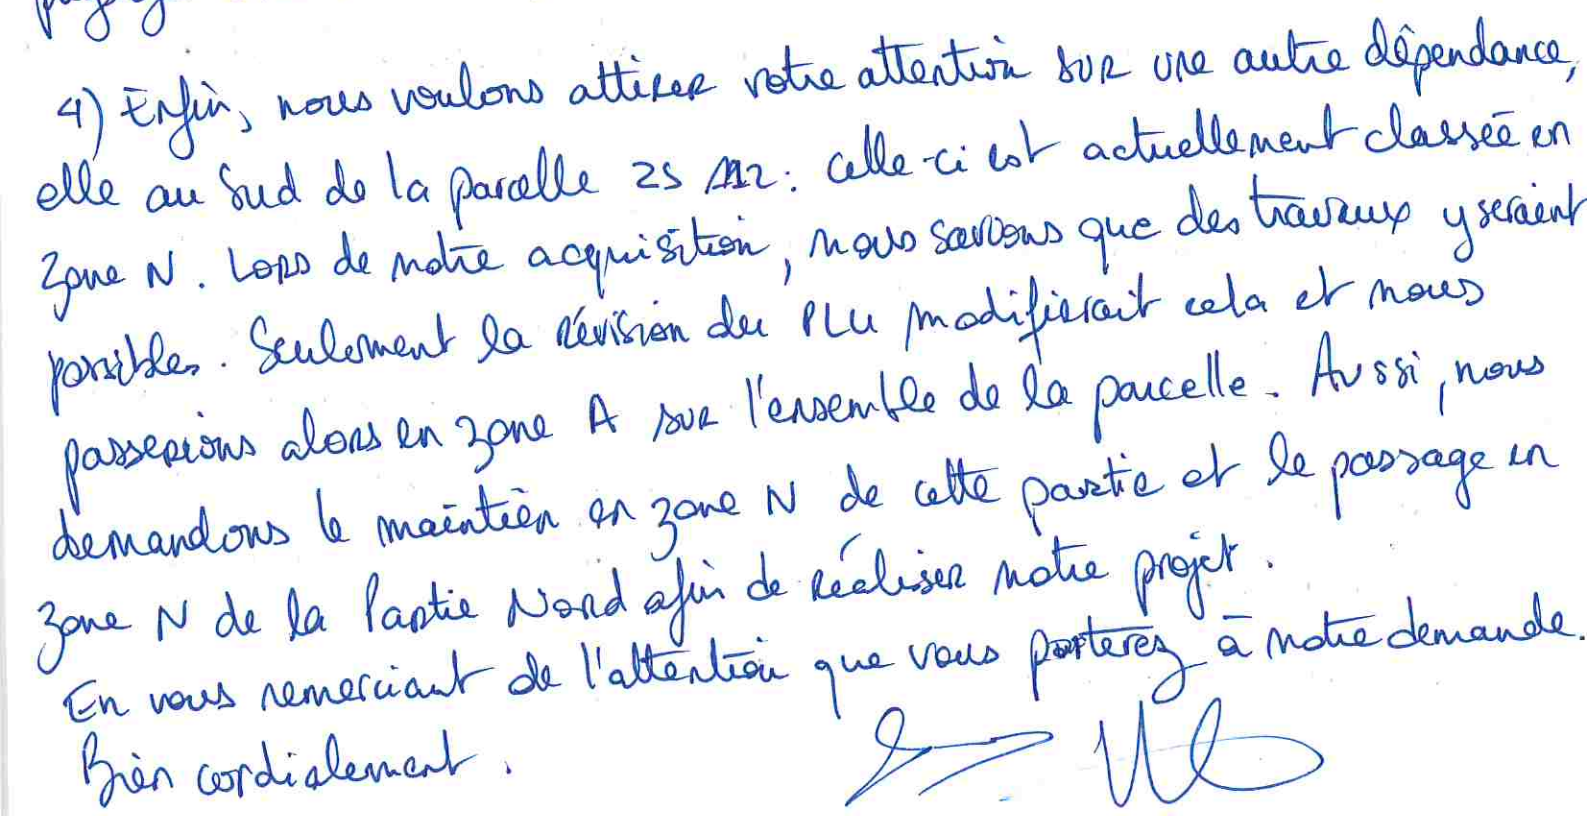 4) Enfin, nous voulons attirer votre attention sur une autre dépendance,
elle au Sud de la parcelle ZS 112 : celle-ci est actuellement classée en
zone N. Lors de notre acquisition, nous savions que des travaux y seraient
possibles. Seulement la révision du PLU modifierait cela et nous
passerions alors en zone A sur l'ensemble de la parcelle. Aussi, nous
demandons le maintien en zone N de cette partie et le passage en
zone N de la Partie Nord afin de réaliser notre projet.
En vous remerciant de l'attention que vous porterez à notre demande.
Bien cordialement.